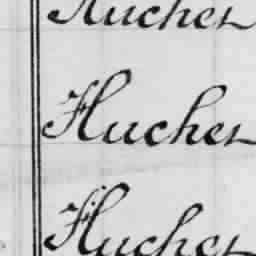 Huches
Huches
Huches